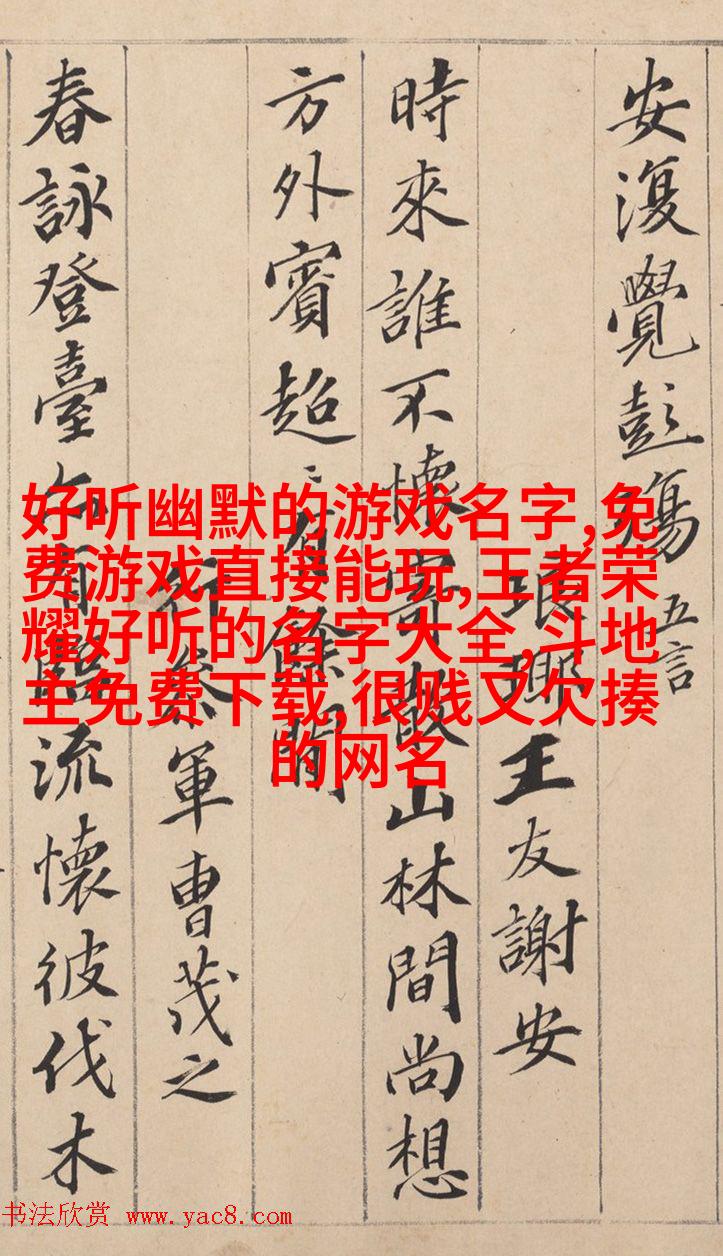 安復覺彭殤 五言
琅琊王友謝安
時來誰不懷寄散山林間尚想
方外賓超〻有餘閒
行參軍曹茂之
春詠登臺亦有臨流懷彼伐木
好听幽默的游戏名字,免
费游戏直接能玩,王者荣
耀好听的名字大全,斗地
主免费下载,很贱又欠揍
的网名
书法欣赏 www.yac8.com